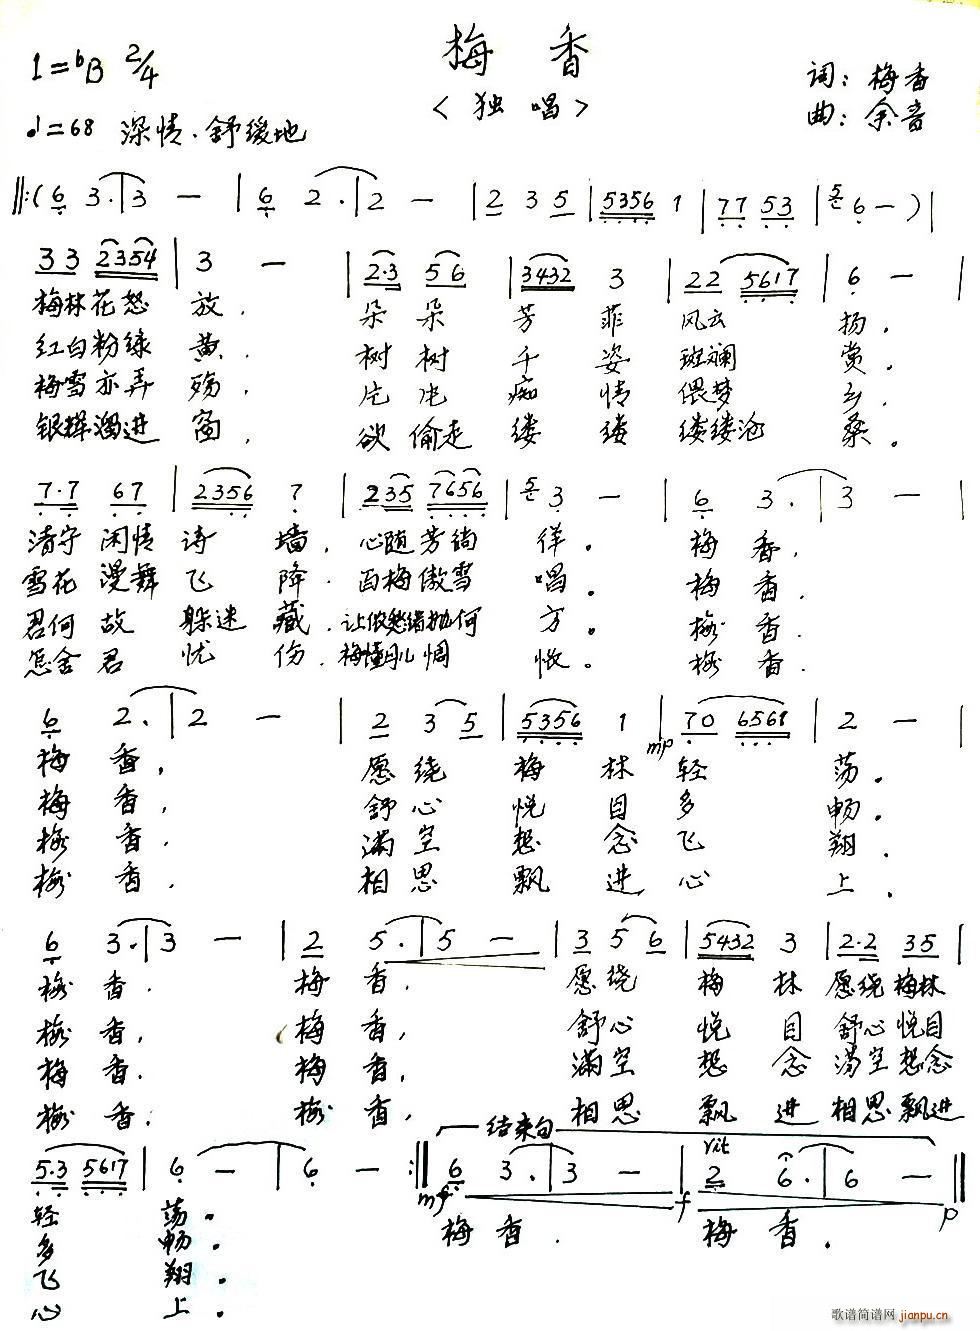 梅香
1=bB 2/4
<独唱>
词：梅香
♩=68 深情.舒缓地
曲：余音
‖:( 6 3.|3 - | 6 2.|2 - | 2 3 5 | 5356 1 | 77 53 | 5 6 - ) |
33 2354 | 3 - | 2·3 56 | 3432 3 | 22 5617 | 6 - |
梅林花怒放. 朵朵芳菲风云扬.
红白粉绿黄. 树树千姿斑斓赏.
梅雪亦弄殇. 片片痴情偎梦乡.
银辉溜进窗. 欲偷走缕缕缕缕沧桑.
7·7 67 | 2356 7 | 235 7656 | 5 3 - | 6 3.|3 - |
清守闲情诗墙, 心随芳徜徉。梅香,
雪花漫舞飞降. 百梅傲雪唱。梅香.
君何故躲迷藏. 让侬愁绪抛何方。梅香.
怎舍君忧伤. 梅懂 惆怅。梅香.
6 2.|2 - | 2 35 | 5356 1 | 70 6561 | 2 - |
mp
梅香, 愿绕梅林轻荡.
梅香, 舒心悦目多畅.
梅香. 满空想念飞翔.
梅香. 相思飘进心上.
6 3.|3 - | 2 5.|5 - | 3 56 | 5432 3 | 2·2 35 |
梅香. 梅香. 愿绕梅林愿绕梅林
梅香, 梅香, 舒心悦目舒心悦目
梅香. 梅香, 满空想念满空想念
梅香. 梅香, 相思飘进相思飘进
结束句
rit
5·3 5617 | 6 - | 6 - :‖ 6 3.|3 - | 2 6.|6 - ‖
mp f p
轻荡。梅香. 梅香.
多畅.
飞翔.
心上.
歌谱简谱网
jianpu.cn